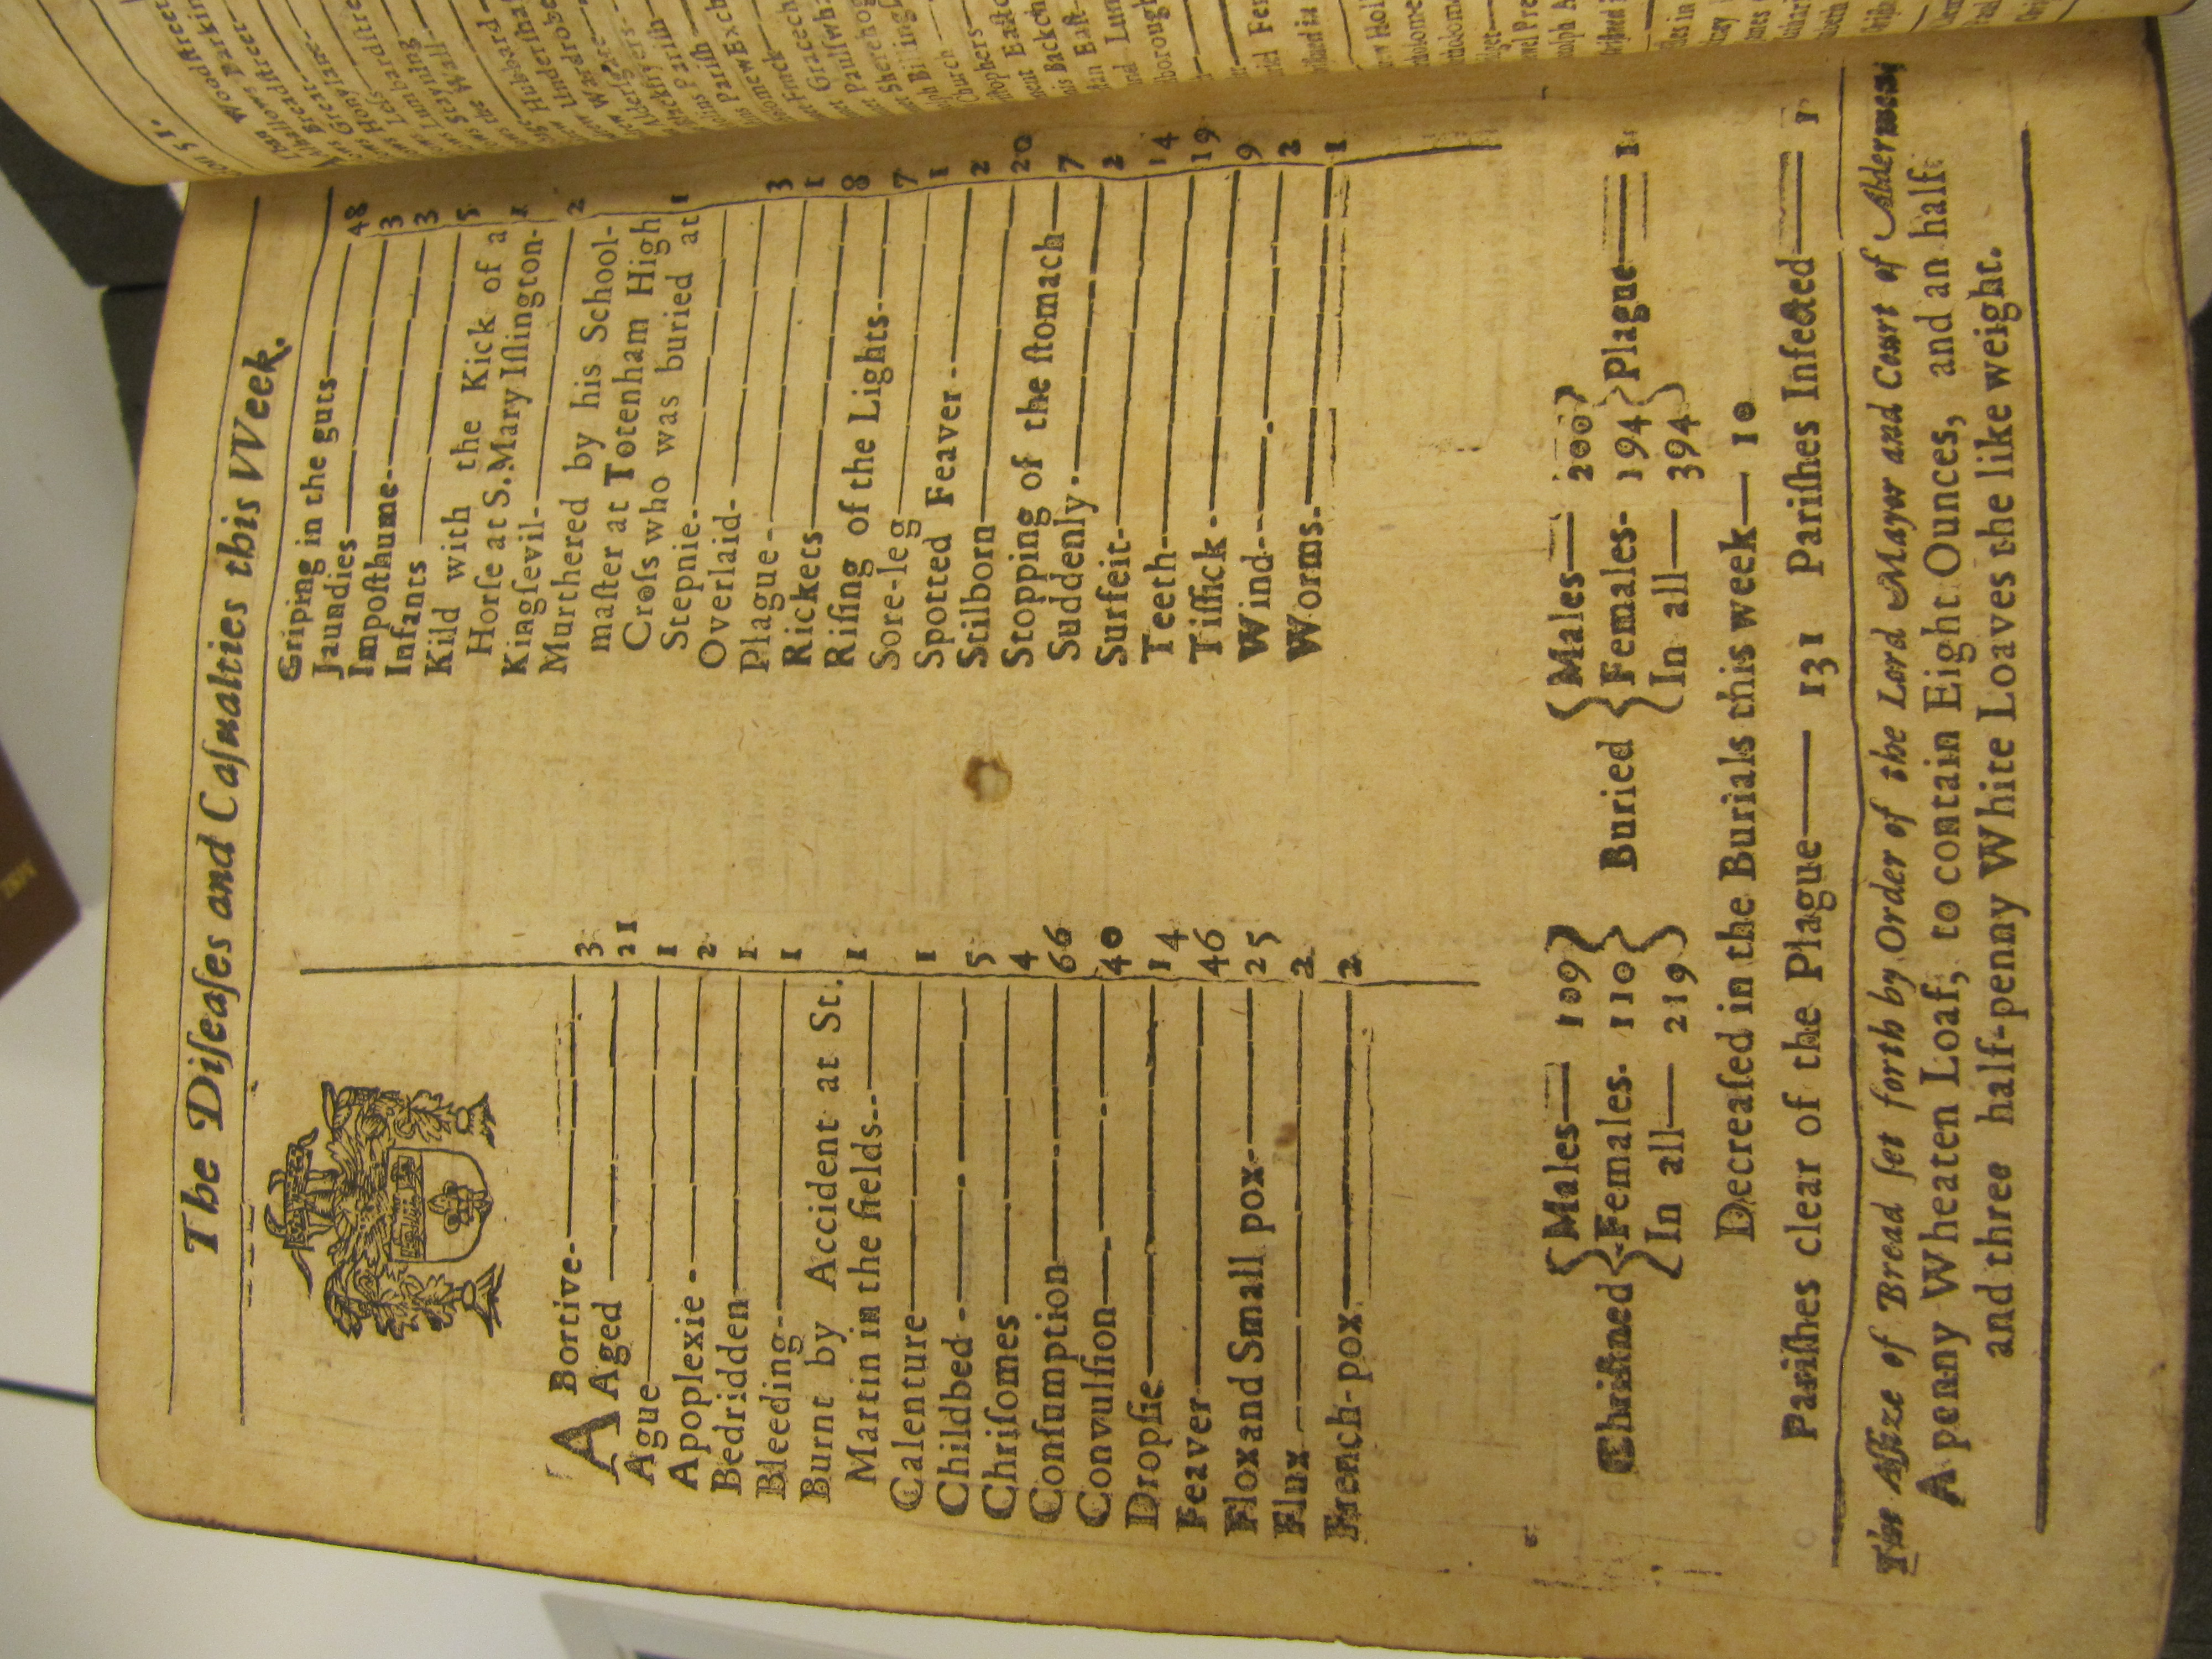 The Diſeaſes and Caſualties this VVeek.
ABortive- 3
Aged 21
Ague 1
Apoplexie - 2
Bedridden 1
Bleeding 1
Burnt by Accident at St.
Martin in the fields 1
Calenture 1
Childbed - 5
Chriſomes 4
Conſumption 66
Convulſion 40
Dropſie 14
Feaver 46
Flox and Small pox 25
Flux 2
French-pox 2
Griping in the guts 48
Jaundies 3
Impoſthume 3
Infants 5
Kild with the Kick of a
Horſe at S. Mary Iſlington- 1
Kingſevil 2
Murthered by his School-
maſter at Totenham High
Croſs who was buried at
Stepnie 1
Overlaid 3
Plague 1
Rickets 8
Riſing of the Lights 7
Sore-leg 1
Spotted Feaver 2
Stilborn 20
Stopping of the ſtomach 7
Suddenly 2
Surfeit 14
Teeth 19
Tiſſick 9
Wind 2
Worms 1
Chriſtned { Males— 109 } Buried { Males— 200 } Plague— 1
Females- 110 Females- 194
In all— 219 In all— 394
Decreaſed in the Burials this week— 10
Pariſhes clear of the Plague— 131 Pariſhes Infected— 1
The Aſſize of Bread ſet forth by Order of the Lord Mayor and Court of Aldermen,
A penny Wheaten Loaf, to contain Eight Ounces, and an half
and three half-penny White Loaves the like weight.